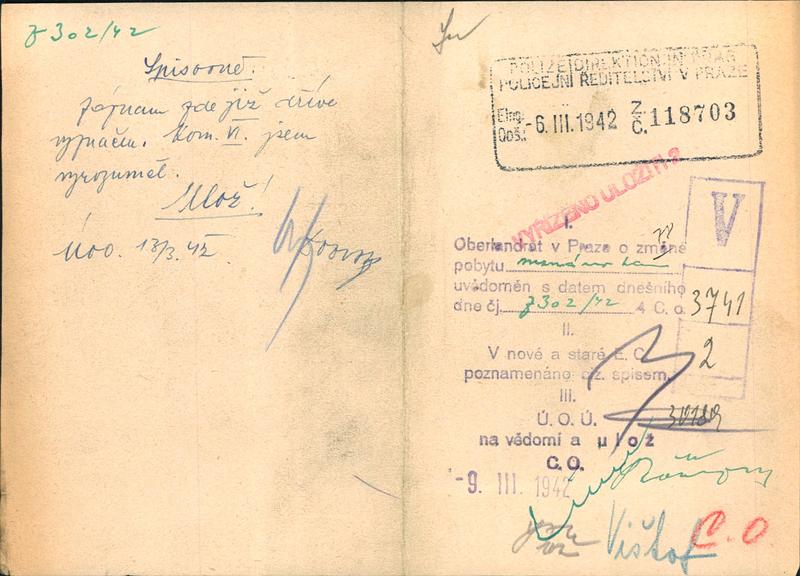 z 302/42
Spisovně.
záznam zde již dříve
vyznačen. Kom. VI. jsem
vyrozuměl.
Ulož!
13/3. 42
POLIZEIDIREKTION IN PRAG
POLICEJNÍ ŘEDITELSTVÍ V PRAZE
Eing.
Došl. -6. III. 1942 Z. Č. 118703
VYŘÍZENO ULOŽITI
V
3741
2
I.
Oberlandrat v Praze o změně
pobytu
uvědoměn s datem dnešního
dne čj. z 302/42 4 C. o.
II.
V nové a staré E. C.
poznamenáno čiz. spisem.
III.
Ú. O. Ú.
na vědomí a ulož
C. O.
-9. III. 1942
C. O.